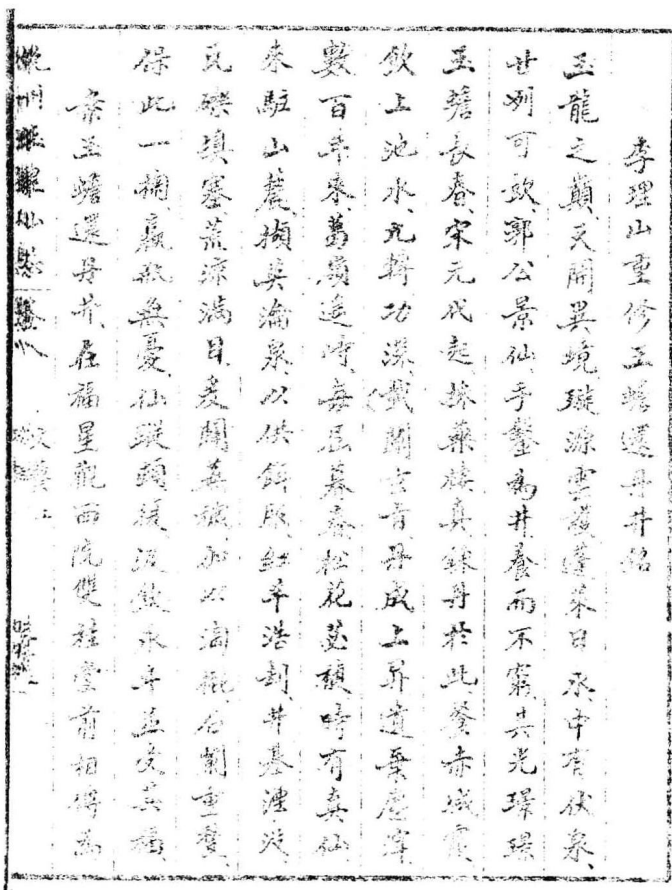 李理山重修玉蟾還丹井銘
玉龍之巔天開異境璇源雲護蓬萊日永中有伏泉
甘冽可飲郭公景仙手鑿為井養而不窮其光璟璟
玉蟾長春宋元代起採藥棲真鍊丹於此餐赤城霞
飲上池水九轉功深載開玄旨丹成上昇道集虛寧
數百年來葛嶺遙時每屆暮春松花茁穎時有真仙
來駐山麓擷英瀹泉以供餌服紅羊浩刼井基湮沒
瓦礫填塞荒涼滿目爰闢蕪穢加以淘椒石闌重甃
保此一掬羸瓶無憂仙蹤頤援汲飲永年並受其福
案玉蟾還丹井在福星觀西院雙桂堂前相傳為
卷八